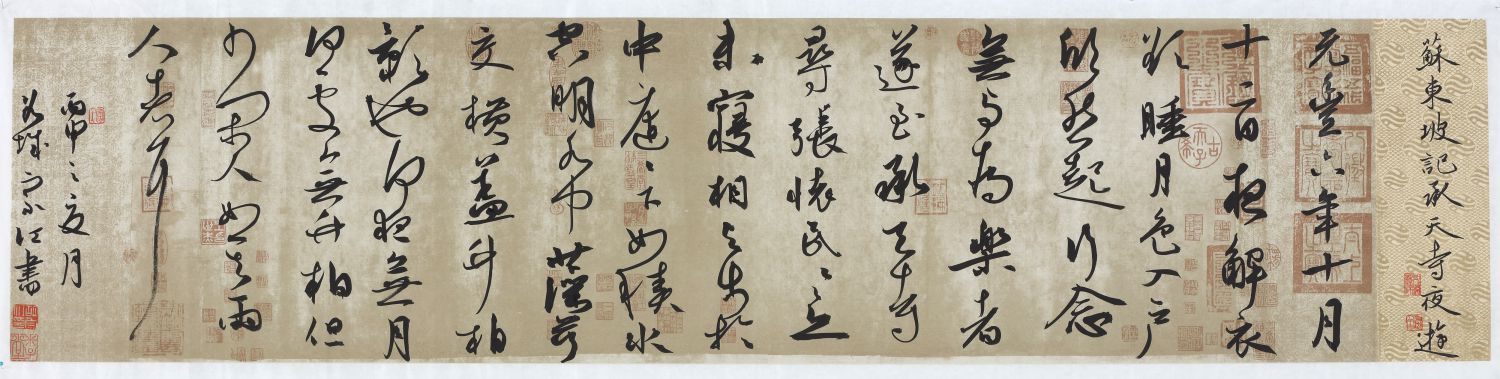 蘇東坡記承天寺夜遊
元豐六年十月
十二日夜解衣
欲睡月色入戶
欣然起行念
無與為樂者
遂至承天寺
尋張懷民〻亦
未寢相與步於
中庭〻下如積水
空明水中藻荇
交橫蓋竹柏
影也何夜無月
何處無竹柏但
少閑人如吾兩
人者耳
丙申之夏月
江書